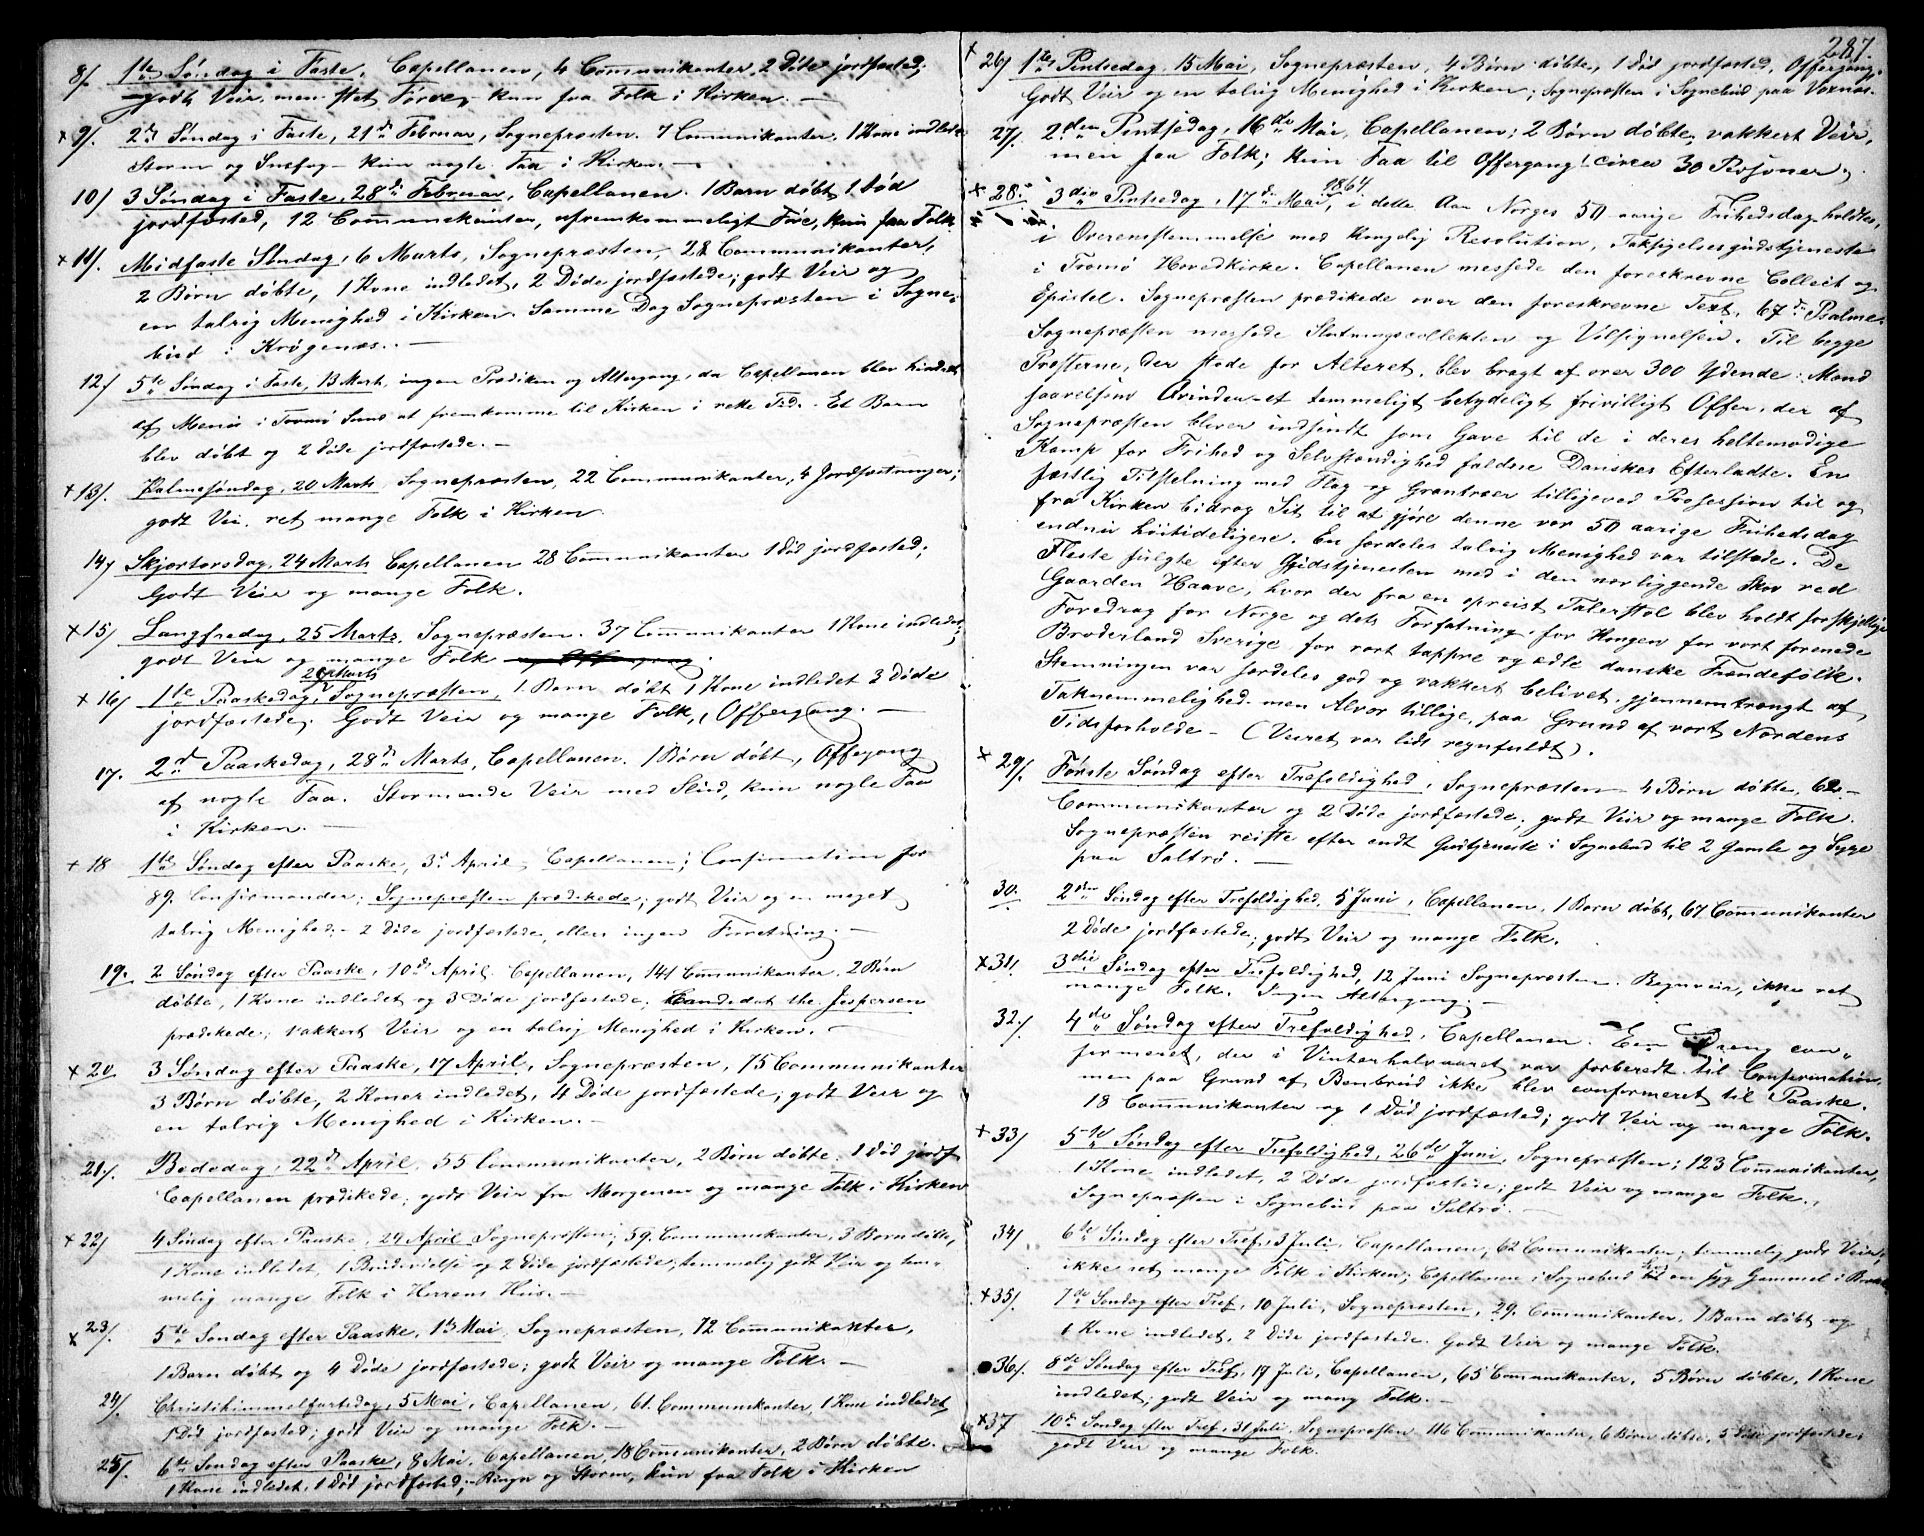 8/. 1ste Søndag i Faste, Capellanen, 4 Communikanter, 2 Døde jordfæstede;
godt Veir, men slet Føre, kun faa Folk i Kirken. —
x 9/. 2de Søndag i Faste, 21de Februar, Sognepræsten. 7 Communikanter. 1 Kone indledt
Storm og Snefog – kun nogle Faa i Kirken. —
10/ 3 Søndag i Faste, 28de Februar, Capellanen. 1 Barn døbt, 1 Død
jordfæsted, 12 Communekanter, ufremkommeligt Føre, kun faa Folk
x 11/. Midfaste Søndag, 6 Marts, Sognepræsten, 28 Communikanter,
2 Børn døbte, 1 Kone indledet, 2 Døde jordfæstede; godt Veir og
en talrig Menighed i Kirken. Samme Dag Sognepræsten i Sogne-
bud i Krøgenæs. —
12/ 5te Søndag i Faste, 13 Marts, ingen Prædiken og Altergang, da Capellanen blev hindret
af Menis i Tromø Sund at fremkomme til Kirken i rette Tid. Et Barn
blev døbt og 2 døde jordfæstede. —
x 13/. Palmesøndag, 20 Marts, Sognepræsten, 22 Communikanter, 4 Jordfæstninger;
godt Veir, ret mange Folk i Kirken.
14/ Skjærtorsdag, 24 Marts Capellanen 28 Communikanter 1 død jordfæsted;
Godt Veir og mange Folk.
x 15/ Langfredag, 25 Marts, Sognepræsten. 37 Communikanter 1 Kone indledet;
godt Veir og mange Folk
x 16/ 1ste Paaskedag, Sognepræsten, 1 Barn døbt 1 Kone indledet 3 Døde
jordfæstede. Godt Veir og mange Folk, Offergang. —
17. 2de Paaskedag, 28de Marts, Capellanen. 1 Børn døbt, Offergang
af nogle Faa. Stormende Veir med Slud, kun nogle Faa
i Kirken. —
x 18 1ste Søndag efter Paaske, 3de April, Capellanen; Confirmation for
89. Confirmander; Sognepræsten prædikede; godt Veir og en meget
talrig Menighed; – 2 Døde jordfæstede, ellers ingen Forretning. —
19. 2 Søndag efter Paaske, 10de April. Capellanen, 141 Communikanter. 2 Børn
døbte, 1 Kone indledet og 3 Døde jordfæstede; Candidat the. Jespersen
prædikede; vakkert Veir og en talrig Menighed i Kirken. —
x 20 3 Søndag efter Paaske, 17 April, Sognepræsten, 75 Communikanter
3 Børn døbte, 2 Koner indledet, 4 Døde jordfæstede; godt Veir og
en talrig Menighed i Kirken. —
21/. Bededag, 22de April, 55 Communikanter, 2 Børn døbte, 1 død jordf.
Capellanen prædikede; godt Veir fra Morgenen og mange Folk i Kirken
x 22/ 4 Søndag efter Paaske, 24 April Sognepræsten; 59. Communikanter, 3 Børn døbte,
1 Kone indledet, 1 Brudevielse og 2 døde jordfæstede; temmelig godt Veir og tem-
melig mange Folk i Herrens Huus. —
x 23/. 5te Søndag efter Paaske, 1ste Mai, Sognepræsten, 72 Communikanter,
1 Barn døbt og 4 Døde jordfæstede; godt Veir og mange Folk. —
24/. Christihimmelfartsdag, 5 Mai, Capellanen, 61. Communikanter, 1 Kone indledet,
1 Død jordfæsted; godt Veir og mange Folk. —
25/. 6te Søndag efter Paaske, 8 Mai, Capellanen, 18 Communikanter, 2 Børn døbte.
1 Kone indledet, 1 Død jordfæsted; – Regn og Storm, kun faa Folk i Kirken
287
x 26/ 1ste Pintsedag, 15 Mai, Sognepræsten, 4 Børn døbte, 1 død jordfæsted, Offergang;
Godt Veir og en talrig Menighed i Kirken; Sognepræsten i Sognebud paa Voxnæs.
27/. 2den Pintsedag, 16de Mai, Capellanen; 2 Børn døbte, vakkert Veir,
men faa Folk; kun Faa til Offergang! circa 30 Personer.
x 28. 3die Pintsedag, 17de Mai, 1864, i dette Aar Norges 50 aarige Frihedsdag holdtes,
i Overensstemmelse med Kongelig Resolution, Taksigelsesgudstjeneste
i Tromø Hovedkirke. Capellanen messede den foreskrevne Collect og
Epistel. Sognepræsten prædikede over den foreskrevne Text, 67de Psalme.
Sognepræsten messede Slutningscollekten og Velsignelsen. Til begge
Præsterne, der stode for Alteret, blev bragt af over 300 Ydende: Mænd
saavelsom Qvinder – et temmeligt betydeligt frivilligt Offer, der af
Sognepræsten bliver indsendt som Gave til de i deres heltemodige
Kamp for Frihed og Selvstændighed faldne Danskes Efterladte. En
festlig Tilstelning med Flag og Grøntræer tilligeved Procession til og
fra Kirken bidrog Sit til at gjøre denne vor 50 aarige Frihedsdag
endnu høitideligere. En særdeles talrig Menighed var tilstæde. De
Fleste fulgte efter Gudstjenesten med i den nærliggende Skov ved
Gaarden Haave, hvor der fra en opreist Talerstol blev holdt forskjellige
Foredrag for Norge og dets Forfatning, for Kongen for vort forenede
Broderland Sverige for vort tappre og ædle danske Frændefolk.
Stemningen var særdeles god og vakkert belivet, gjennemtrængt af
Taknemmelighed, men Alvor tillige, paa Grund af vort Nordens
Tidsforholde – (Veiret var lidt regnfuldt).
x 29/. Første Søndag efter Trefoldighed, Sognepræsten – 4 Børn døbte, 62 –
Communikanter og 2 Døde jordfæstede; godt Veir og mange Folk.
Sognepræsten reiste efter endt Gudtjeneste i Sognebud til 2 Gamle og Syge
paa Saltrø. —
30. 2den Søndag efter Trefoldighed, 5 Juni, Capellanen, 1 Barn døbt, 67 Communikanter
2 Døde jordfæstede; godt Veir og mange Folk.
x 31/. 3die Søndag efter Trefoldighed, 12 Juni Sognepræsten. Regnveir, ikke ret
mange Folk. Ingen Altergang. —
32/. 4de Søndag efter Trefoldighed, Capellanen. Een Dreng con-
fermeret, der i Vinterhalvaaret var forberedt til Confirmation,
men paa Grund af Benbrud ikke blev confermeret til Paaske.
18 Communikanter og 1 Død jordfæsted; godt Veir og mange Folk.
x 33/ 5te Søndag efter Trefoldighed, 26de Juni, Sognepræsten; 123 Communikanter,
1 Kone indledet, 2 Døde jordfæstede; godt Veir og mange Folk.
Sognepræsten i Sognebud paa Saltrø. —
34/ 6te Søndag efter Tref. 3 Juli, Capellanen, 62 Communikanter; temmelig godt Veir;
ikke ret mange Folk i Kirken; Capellanen i Sognebud til en syg Gammel i
x 35/. 7de Søndag efter Tref., 10 Juli, Sognepræsten, 29. Communikanter, 1 Barn døbt og
1 Kone indledet, 2 Døde jordfæstede. Godt Veir og mange Folk.
36/. 8de Søndag efter Tref, 17 Juli, Capellanen, 65 Communikanter, 5 Børn døbte, 1 Kone
indledet; godt Veir og mang Folk. —
x 37 10de Søndag efter Tref, 31 Juli, Sognepræsten, 116 Communikanter, 6 Børn døbte, 5 Døde jordfæstede
godt Veir og mange Folk.